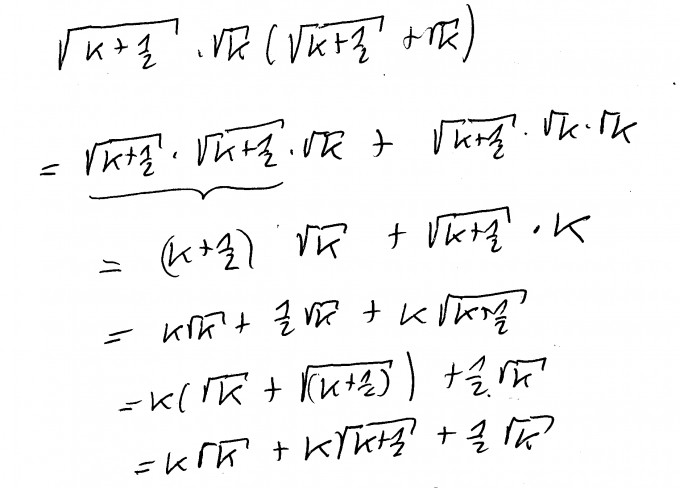 √(k+½) · √k (√(k+½) + √k)
= √(k+½) · √(k+½) · √k + √(k+½) · √k · √k
= (k+½) √k + √(k+½) · k
= k√k + ½√k + k√(k+½)
= k(√k + √((k+½))) + ½√k
= k√k + k√(k+½) + ½√k